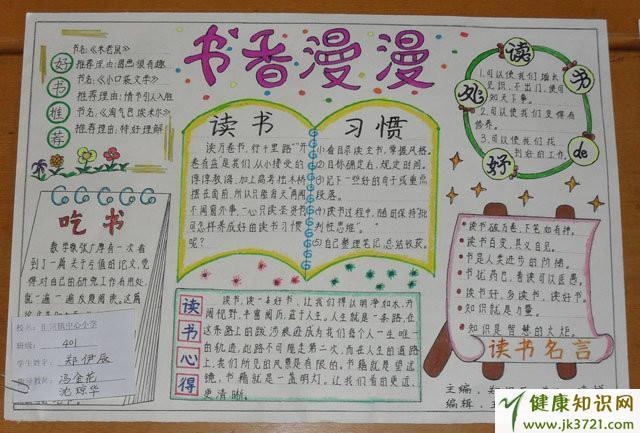 书香漫漫
好书推荐
书名:《木老鼠》
推荐理由:图画很有趣
书名:《小口袋文学》
推荐理由:情节引人入胜
书名:《淘气包埃米尔》
推荐理由:特好理解
读书好处de
1.可以使我们增长
见识,不出门,便可
知天下事。
2.可以使我们变得有
修养。
3.可以使我们找
到好的工作。
读书 习惯
读万卷书,行千里路"开
卷有益是我们从小接受的
谆谆教诲、加上高考独木桥
摆在面前,所以只能每天两耳
不闻窗外事,一心只读圣贤书
可怎样养成好的读书习惯
呢?
(1)看目录读主书,掌握风格。
(2)目标确定后,规定时间。
(3)记下一些好的句子或重点
段落。
(4)读书过程中,随时保持"批
判性思维"。
(5)自己整理笔记总结收获。
吃书
数学家张广厚有一次看
到了一篇关于亏值的论文,觉
得对自己的研究工作有用处,
就一遍一遍反复阅读。这篇
校名:
班级: 401
学生姓名: 郑伊辰
指导教师: 冯金花
沈琼华
读书心得
读书,读一本好书,让我们得以明净如水,开
阔视野,丰富阅历,益于人生。人生就是一条路,在
这条路上的跋涉痕迹成为我们每个人一生唯一
的轨迹,此路不可能走第二次,而在人生的道路
上,我们所见的风景是有限的。书籍就是望远
镜,书籍就是一盏明灯,让我们看的更远、
更清晰。
读书破万卷,下笔如有神。
读书百变,其义自见。
书是人类进步的阶梯。
书犹药也,善读可以医愚。
读书好,多读书,读好书。
知识就是力量。
知识是智慧的火炬。
读书名言
主编:
编辑:
健康知识网
www.jk3721.com